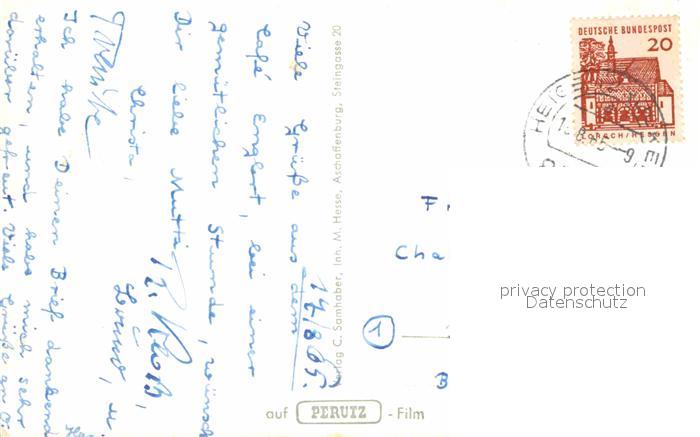 14/8.65.
Viele Grüße aus dem
Café Englert, bei einer
gemütlichen Stunde, wünsch
Dir liebe Mutti
Christa,
Ich habe Deinen Brief dankend
erhalten, und habe mich sehr
darüber gefreut. Viele Grüße an
Verlag C. Samhaber, Inh. M. Hesse, Aschaffenburg, Steingasse 20
auf PERUTZ - Film
DEUTSCHE BUNDESPOST
20
LORSCH/HESSEN
F
Cha
1
B
privacy protection
Datenschutz